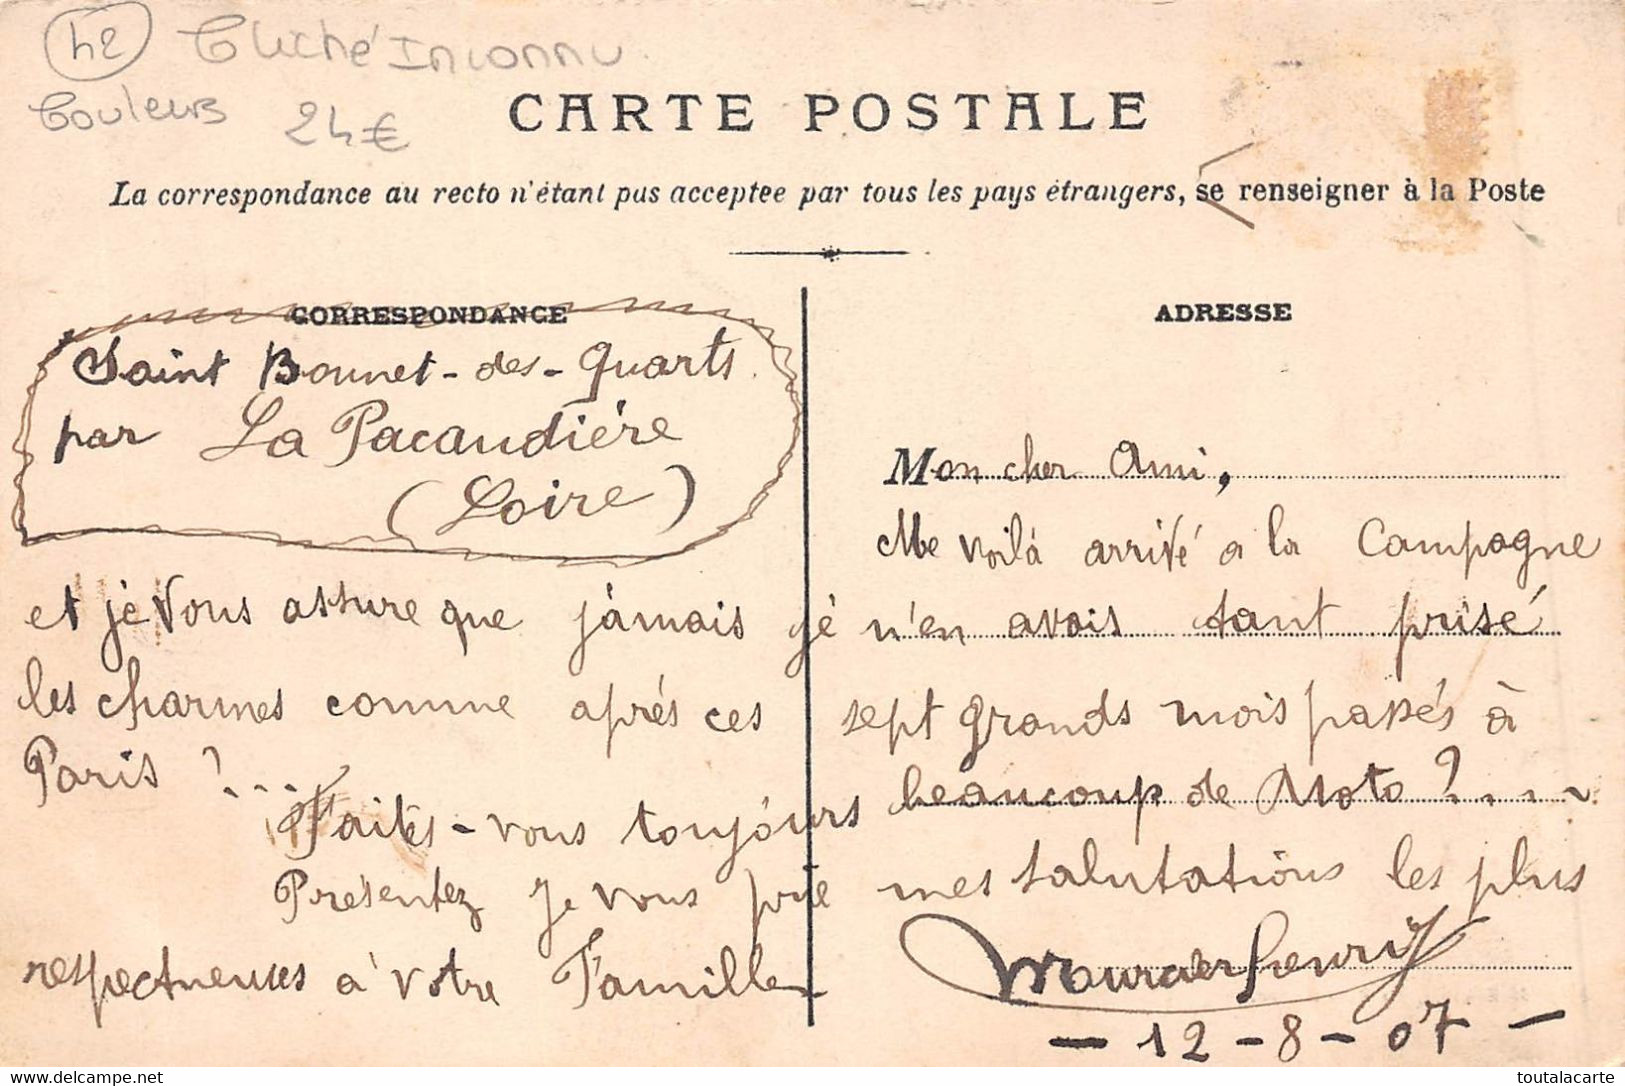 42 Cliché Inconnu
Couleurs 24€
CARTE POSTALE
La correspondance au recto n'étant pas acceptée par tous les pays étrangers, se renseigner à la Poste
CORRESPONDANCE
ADRESSE
Saint Bonnet-des-Quarts
par La Pacaudière
(Loire)
Mon cher Ami,
Me voilà arrivé a la Campagne
et je vous assure que jamais je n'en avais tant prisé
les charmes comme après ces sept grands mois passés à
Paris ?... beaucoup de Moto ?....
Faites-vous toujours
Présentez je vous prie mes salutations les plus
respectueuses à votre Famille
12-8-07
www.delcampe.net
toutalacarte